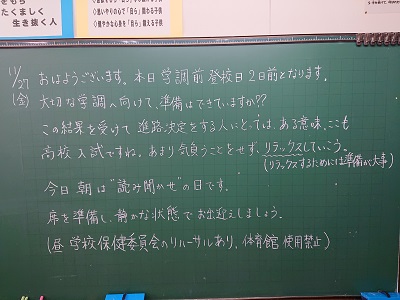 をもち
たくましく
生き抜く人
◇思いやりの心で「自ら」関わる子供
◇健やかな心身を「自ら」鍛える子供
11/27 おはようございます。本日 学調前 登校日2日前となります。
(金) 大切な学調へ向けて、準備はできていますか??
この結果を受けて 進路決定をする人にとっては、ある意味、ここも
高校入試ですね。あまり気負うことをせず、リラックスしていこう。
(リラックスするためには準備が大事)
今日 朝は"読み聞かせ"の日です。
席を準備し、静かな状態でお出迎えしましょう。
(昼 学校保健委員会のリハーサルあり。体育館 使用禁止)